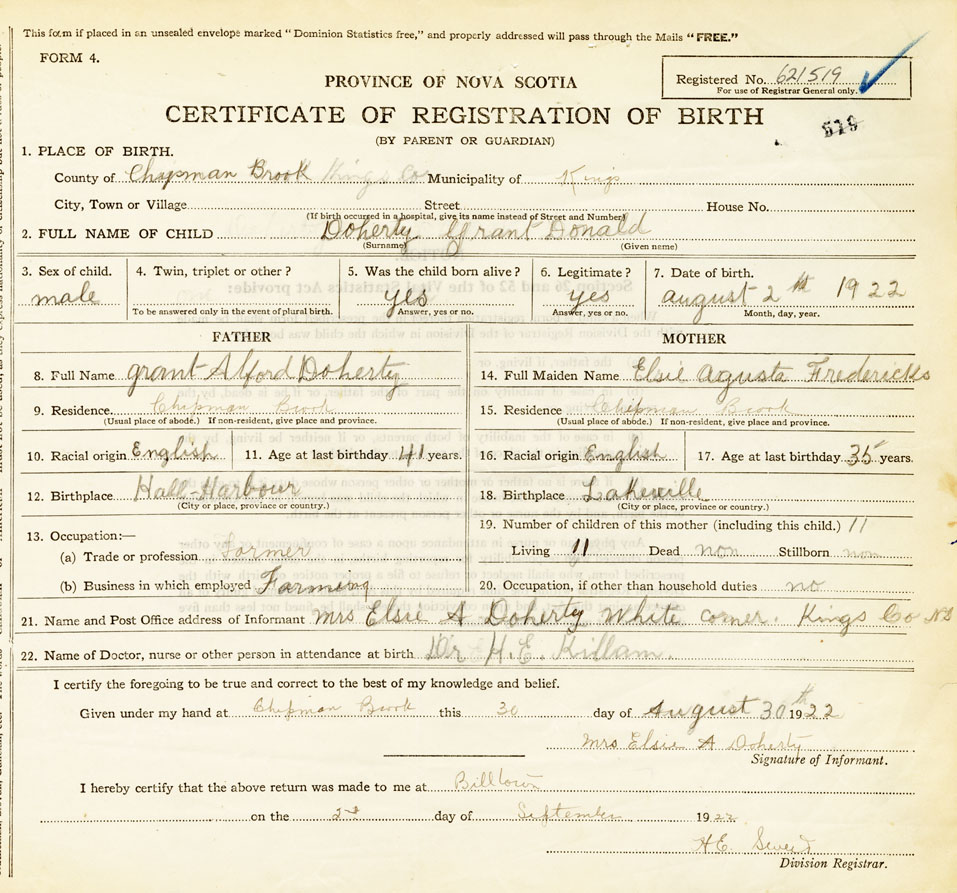 This form if placed in an unsealed envelope marked "Dominion Statistics free," and properly addressed will pass through the Mails "FREE."
FORM 4.
PROVINCE OF NOVA SCOTIA
Registered No. 621519
For use of Registrar General only.
CERTIFICATE OF REGISTRATION OF BIRTH
519
(BY PARENT OR GUARDIAN)
1. PLACE OF BIRTH.
County of Chapman Brook Kings Co Municipality of Kings
City, Town or Village Street House No.
(If birth occurred in a hospital, give its name instead of Street and Number)
2. FULL NAME OF CHILD Doherty Grant Donald
(Surname) (Given name)
3. Sex of child. 4. Twin, triplet or other? 5. Was the child born alive? 6. Legitimate? 7. Date of birth.
male yes yes august 2th 1922
To be answered only in the event of plural birth. Answer, yes or no. Answer, yes or no. Month, day, year.
FATHER MOTHER
8. Full Name grant Alford Doherty 14. Full Maiden Name Elsie Agusta Fredericks
9. Residence. Chipman Brook 15. Residence Chipman Brook
(Usual place of abode.) If non-resident, give place and province. (Usual place of abode.) If non-resident, give place and province.
10. Racial origin English 11. Age at last birthday 41 years. 16. Racial origin English 17. Age at last birthday 35 years.
12. Birthplace Hall-Harbour 18. Birthplace Lakeville
(City or place, province or country.) (City or place, province or country.)
19. Number of children of this mother (including this child.) 11
13. Occupation:—
(a) Trade or profession Farmer Living 11 Dead non Stillborn non
(b) Business in which employed Farming 20. Occupation, if other than household duties no
21. Name and Post Office address of Informant Mrs Elsie A Doherty White corner. Kings Co NS
22. Name of Doctor, nurse or other person in attendance at birth Dr H.E. Killam.
I certify the foregoing to be true and correct to the best of my knowledge and belief.
Given under my hand at Chipman Brook this 30 day of August 30th 1922
Mrs Elsie A Doherty
Signature of Informant.
I hereby certify that the above return was made to me at Billtown
on the 2nd day of September 1922
H.E.
Division Registrar.